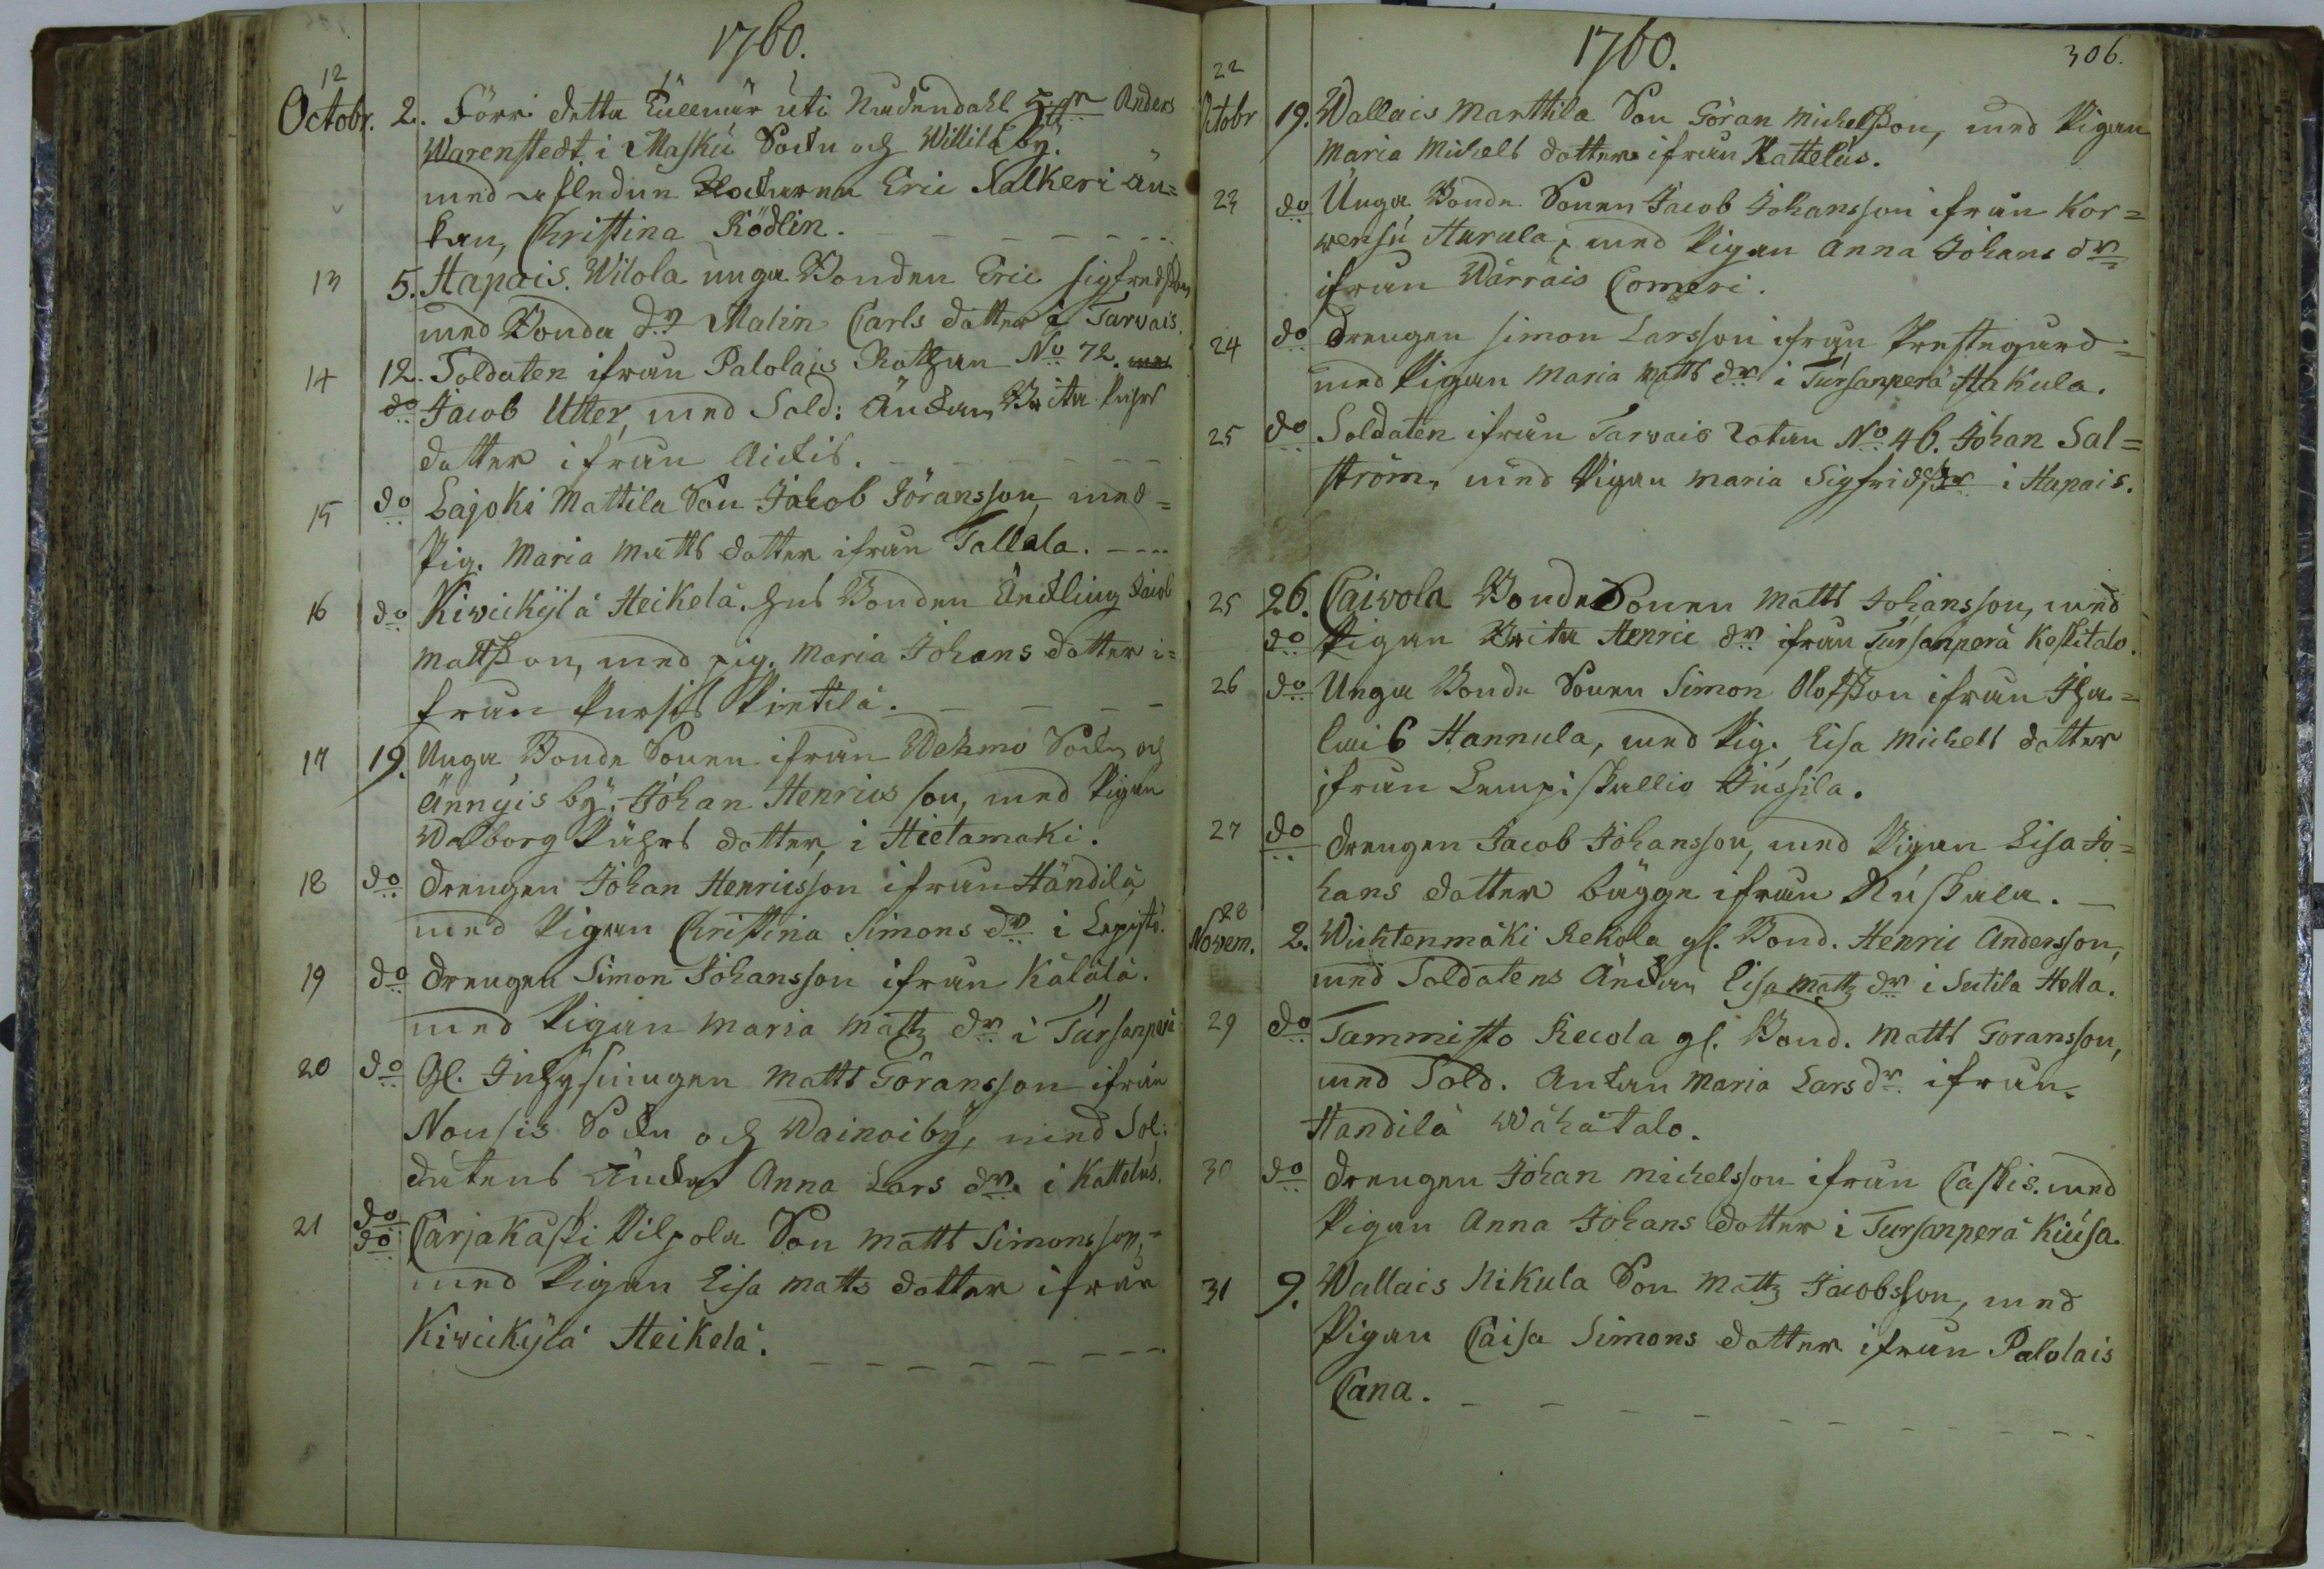 1760.
12
Octobr. 2. Förre detta Tullnär uti Nudendahl H:rr Anders
Warenstedt i Masku Sockn och Willila by.
med aflednne Klockaren Eric Salkeri än=
kan, Christina Rödlin.
13 5. Hapais. Wilola unga Bonden Eric Sigfredsson
med Bonda d:r Malin Carls dotter i Tarvais.
14 12. Soldaten ifrån Palolais Rothan No 72.
do Jacob Utter, med Sold: Änkan, Brita Påhls
dotter ifrån Aickis.
15 do Lajoki Mattila Son Jacob Jöransson, med=
Pig. Maria Matts dotter ifrån Tallala.
16 do Kivickylä Heikelä. Hus Bonden Änkling Jacob
Mattsson, med pig. Maria Johans dotter i=
från Pursis Pintilä.
17 19. Unga Bonde Sonen ifrån Wehmo Sockn och
Ännyis by, Johan Henrics son, med Pigan
Walborg Påhls dotter, i Hietamaki.
18 do drengen Johan Henricsson ifrån Händilä
med Pigan Christina Simons dr i Lepistö.
19 do drengen Simon Johansson ifrån Kälälä.
med Pigan Maria Matz dr i Tursanperä
20 do Gl. Inhysningen Matts Göransson ifrån
Nousis Sockn och Wainoi by, med Sol:
datens Änka Anna Lars dr. i Kattelus.
21 do
do Carjakaski Pilpola Son Matts Simonsson,=
med Pigan Lisa Matts dotter ifrån
Kivickylä Heikelä.
1760. 306.
22
Octobr 19. Wallais Marttila Son Göran Michelsson, med Pigan
Maria Michels dotter ifrån Kattelus.
23 do Unga Bonde Sonen Jacob Johansson ifrån Kor=
wensu Harula, med Pigan Anna Johans dr
ifrån Wärräis Comeri.
24 do drengen Simon Larsson ifrån Prestegård=
med Pigan Maria Matts dr i Tursanperä Hakula.
25 do Soldaten ifrån Tarvais Rotan No 46. Johan Sal=
ström, med Pigan Maria Sigfridsdr i Hapais.
25 26. Caivola Bonde Sonen Matts Johansson, med
do Pigan Brita Henric dr ifrån Tursanperä Koskitalo.
26 do Unga Bonde Sonen Simon Olofsson ifrån Iha=
luis Hannula, med Pig. Lisa Michels dotter
ifrån Lempiskallio Jussila.
27 do drengen Jacob Johansson, med Pigan Lisa Jo=
hans dotter bägge ifrån Ruskala.
28
Novem. 2. Wichtenmäki Rekola gl. Bond. Henric Andersson,
med Soldatens Änkan Lisa Matz dr i Sutila Hella.
29 do Tammisto Recola gl. Bond. Matts Göransson,
med Sold. Änkan Maria Lars dr ifrån
Händilä Wähätalo.
30 do drengen Johan Michelsson ifrån Caskis. med
Pigan Anna Johans dotter i Tursanperä Kiusa.
31 9. Wallais Nikula Son Matz Jacobsson, med
Pigan Caisa Simons dotter ifrån Palolais
Cana.